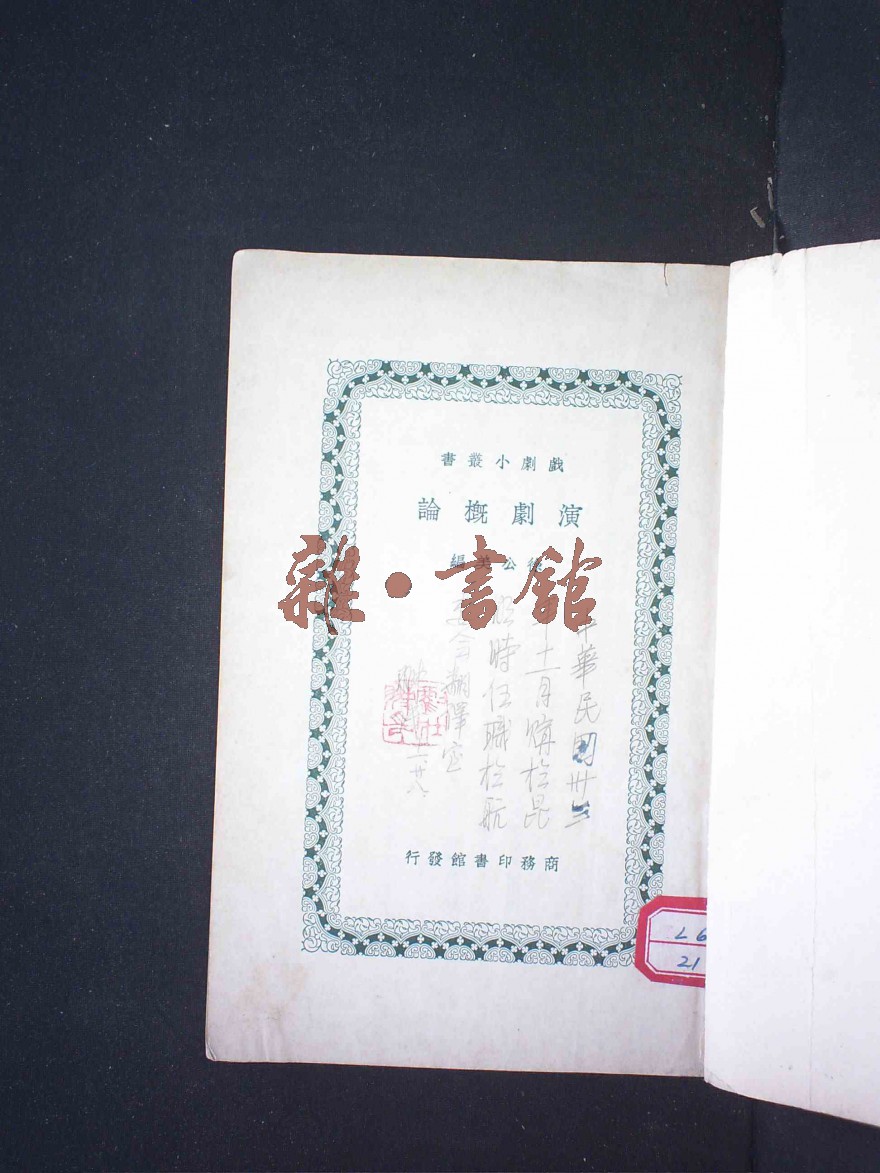 戲劇小叢書
演劇概論
公美編
雜·書館
中華民國卅三
年十一月購於昆
明時任職於航
委會翻譯室
廿八
商務印書館發行
L6
21